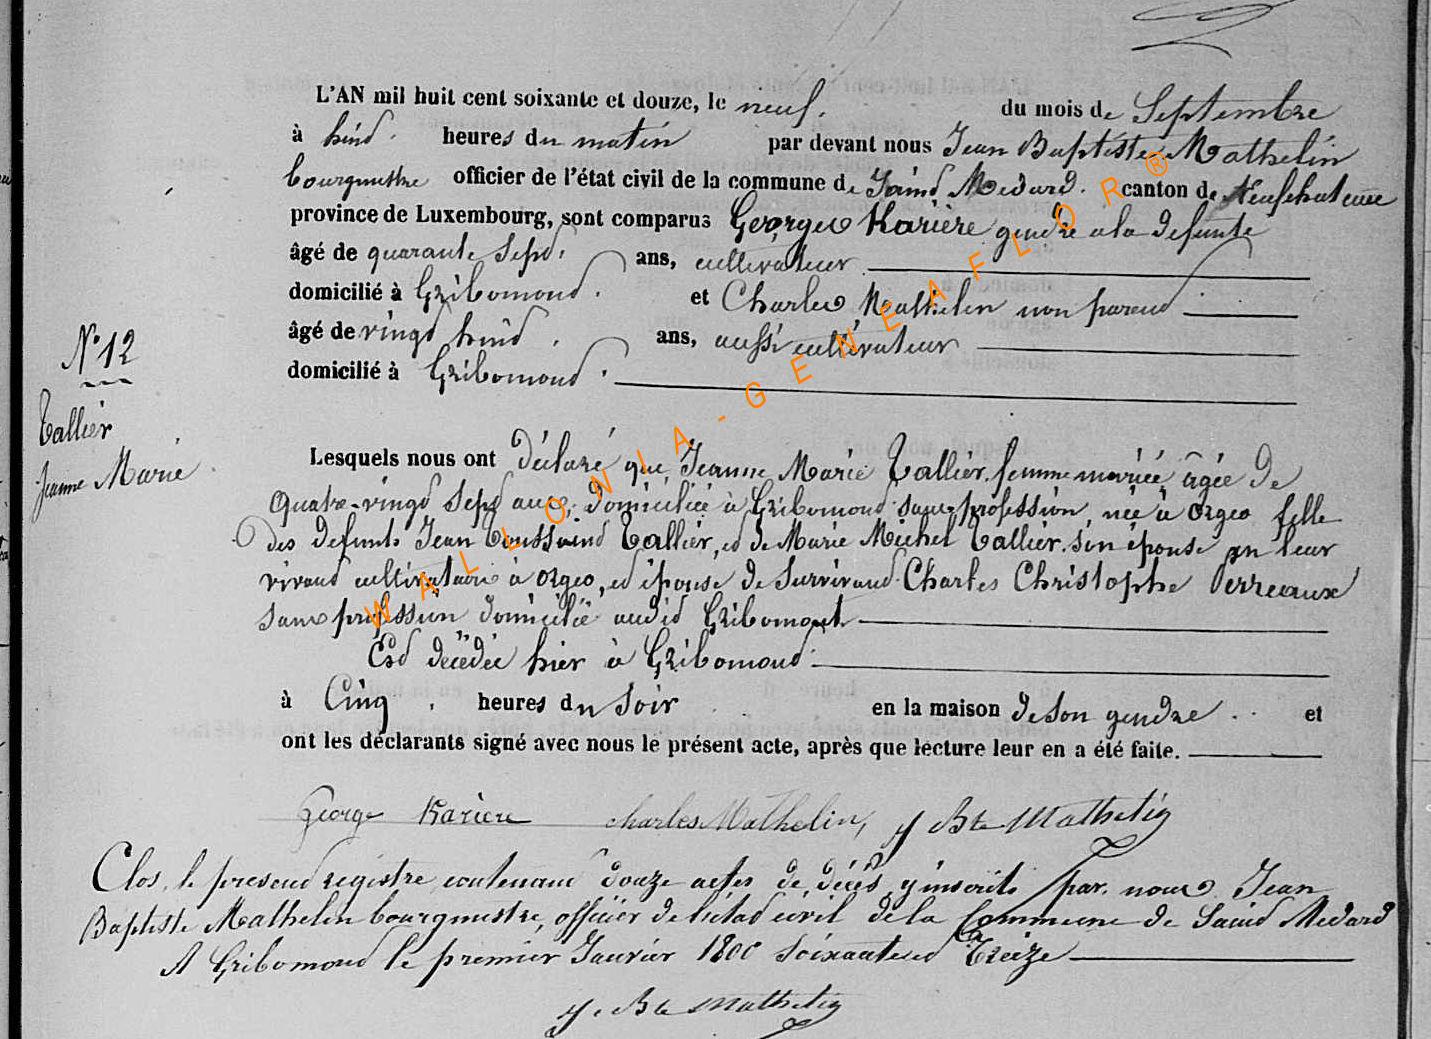 L'AN mil huit cent soixante et douze, le neuf. du mois de Septembre
à huid. heures du matin par devant nous Jean Baptiste Mathelin
bourgmestre officier de l'état civil de la commune de Saind Medard. canton de Neufchateau
province de Luxembourg, sont comparus Georges Karière gendre a la defunte
âgé de quarante sepd, ans, cultivateur
domicilié à Gribomond. et Charles Mathelin non parend
âgé de vingd huid. ans, aussi cultivateur
domicilié à Gribomond.
N° 12
Tallier
Jeanne Marie
Lesquels nous ont déclaré que Jeanne Marie Tallier, femme mariée, âgée de
quatre-vingd sepd ans, domiciliée à Gribomond sans profession, née à Orgeo fille
des defunts Jean Toussaind Tallier, ed de Marie Michel Tallier, son épouse en leur
vivand cultivateurs à Orgeo, ed épouse de survivand Charles Christophe Perreaux
sans profession domicilié audid Gribomont
Esd décédée hier à Gribomond.
à Cinq. heures du soir en la maison de son gendre. et
ont les déclarants signé avec nous le présent acte, après que lecture leur en a été faite.
George Kariere Charles Mathelin, J Bte Mathelin
Clos, le presend registre contenand douze actes de décès y inscrits par nous Jean
Baptiste Mathelin bourgmestre, officier de l'étad civil de la Commune de Saind Medard
A Gribomond le premier Janvier 1800 soixanteed Treize
J. Bte Mathelin
WALLONIA-GENEAFLOR®